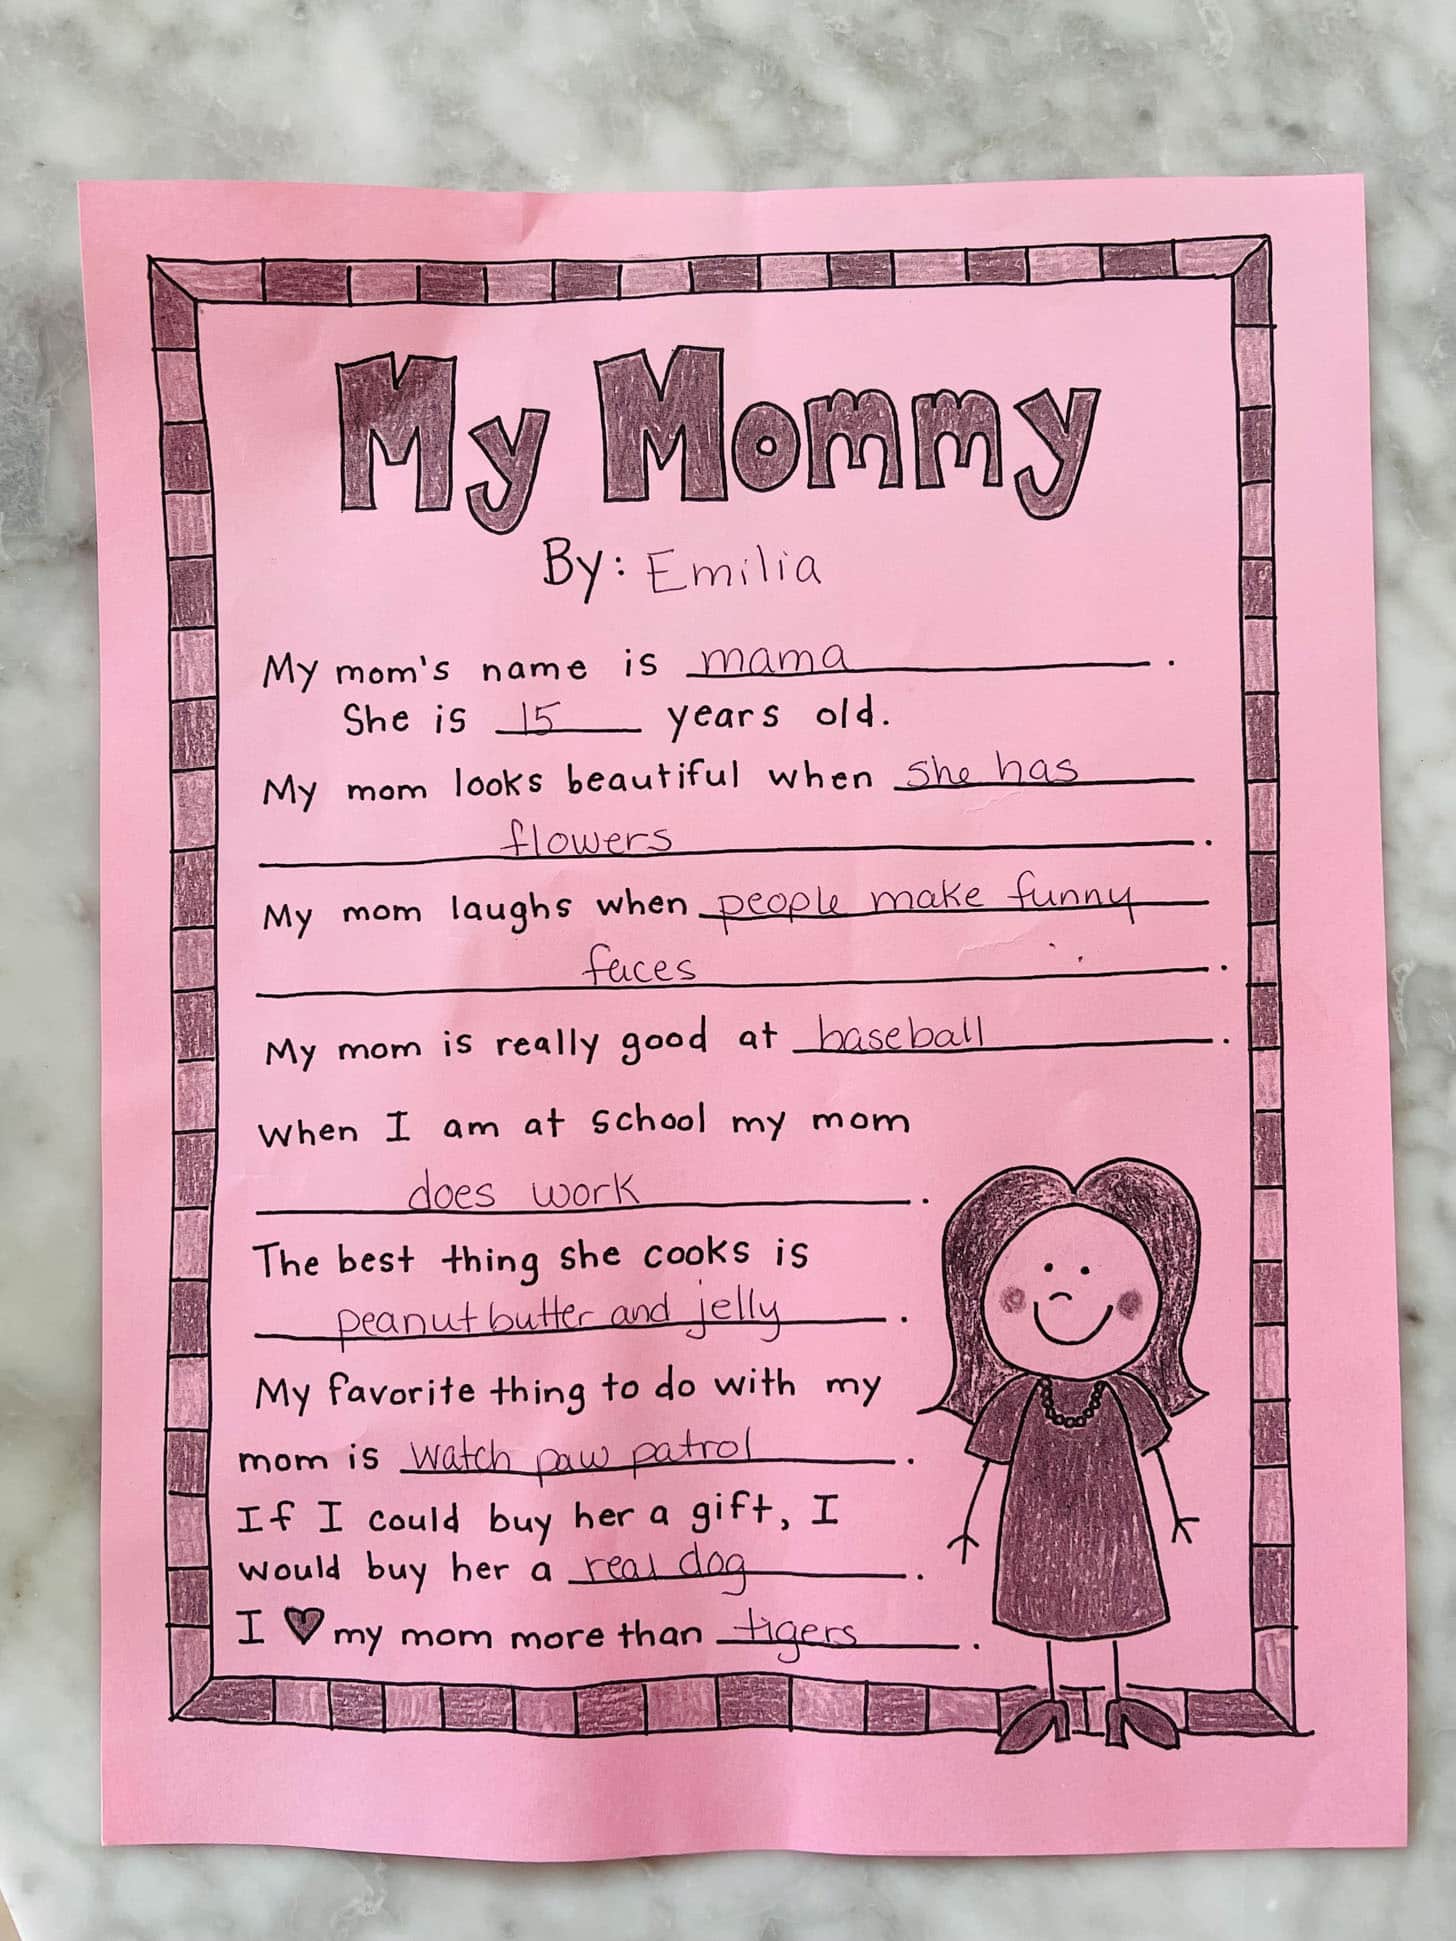 My Mommy
By: Emilia
My mom's name is mama.
She is 15 years old.
My mom looks beautiful when she has
flowers.
My mom laughs when people make funny
faces.
My mom is really good at baseball.
When I am at school my mom
does work.
The best thing she cooks is
peanut butter and jelly.
My favorite thing to do with my
mom is watch paw patrol.
If I could buy her a gift, I
would buy her a real dog.
I ♥ my mom more than tigers.